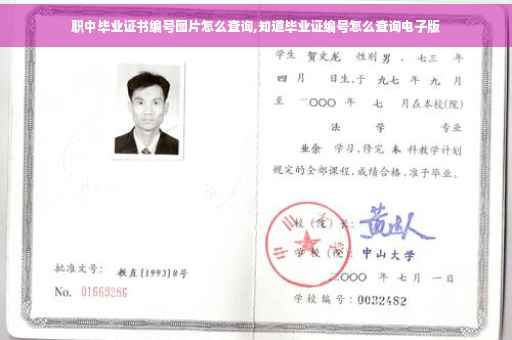 职中毕业证书编号图片怎么查询,知道毕业证编号怎么查询电子版
学生 贺文龙 性别 男 、七三 年
四 月 日生,于 九七 年 九 月
至 二〇〇〇 年 七 月在本校(院)
法 学 专业
业余 学习,修完 本 科教学计划
规定的全部课程,成绩合格,准予毕业。
校(院)长:
学校(院): 中山大学
二〇〇〇 年 七 月 一 日
批准文号: 教直(1993)8号
No. 01669286
学校编号: 0032482